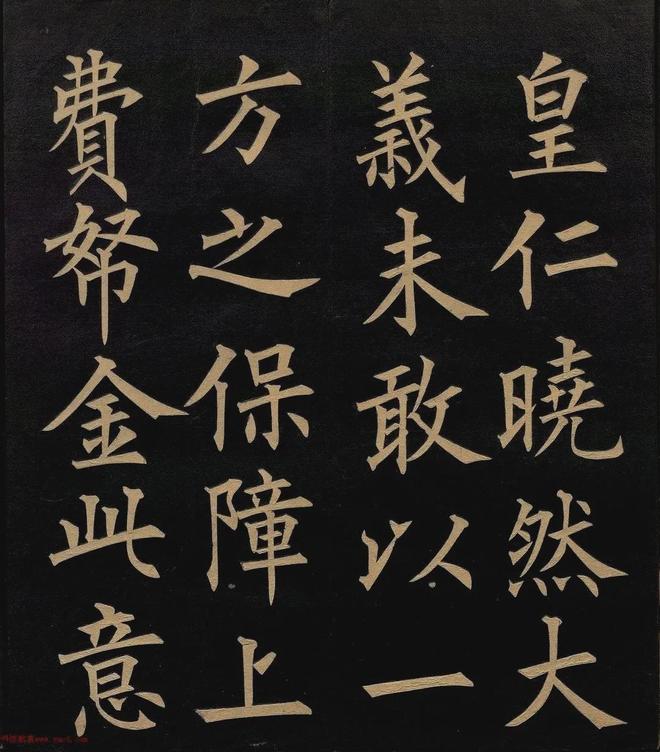 皇仁曉然大
義未敢以一
方之保障上
費帑金此意